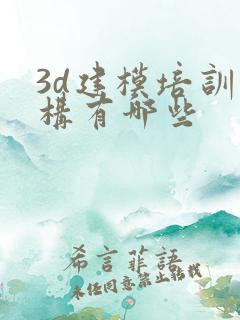 3d建模培訓
構有哪些
希言菲語
未经同意禁止转载